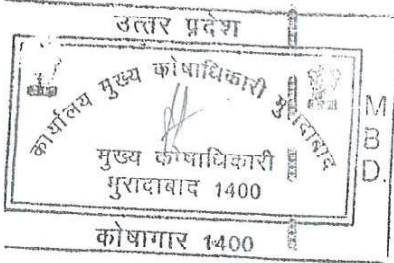 उत्तर प्रदेश
कार्यालय मुख्य कोषाधिकारी मुरादाबाद
मुख्य कोषाधिकारी
मुरादाबाद 1400
कोषागार 1400
M
B
D.